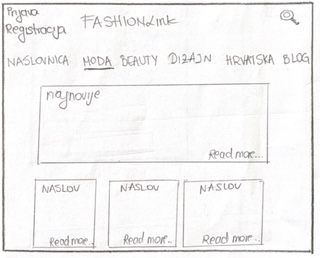 Prijava
Registracija
FASHIONLink
NASLOVNICA MODA BEAUTY DIZAJN HRVATSKA BLOG
najnovije
Read more...
NASLOV NASLOV NASLOV
Read more.. Read more.. Read more..